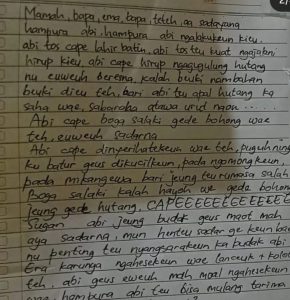 Mamah, bapa, ema, bapa, teteh, aa sadayana
hampura abi, hampura abi ngalakukeun kieu.
abi tos cape lahir batin, abi tos teu kuat ngajalani
hirup kieu abi cape hirup ngagugulung hutang
nu euweuh beresna, kalah beuki nambahan
beuki dieu teh, bari abi teu apal hutang ka
saha wae, sabaraha atawa urut naon .....
Abi cape boga salaki gede bohong wae
teh, euweuh sadarna
Abi cape dinyerihatekeun wae teh, puguh ning
ku batur geus dikucilkeun, pada ngomongkeun,
pada mikangewa bari jeung teu rumasa salah
Boga salaki kalah hayoh we gede bohong
jeung gede hutang, CAPEEEEEEEEEEEEEE
Sugan abi jeung budak geus maot mah
aya sadarna, mun henteu sadar ge keun bae
nu penting teu nyangsarakeun ka budak abi
Era karunya ngahesekeun wae lanceuk + kolot
teh, abi geus eweuh mah moal ngahesekeun
hampura abi teu bisa mulang tarima